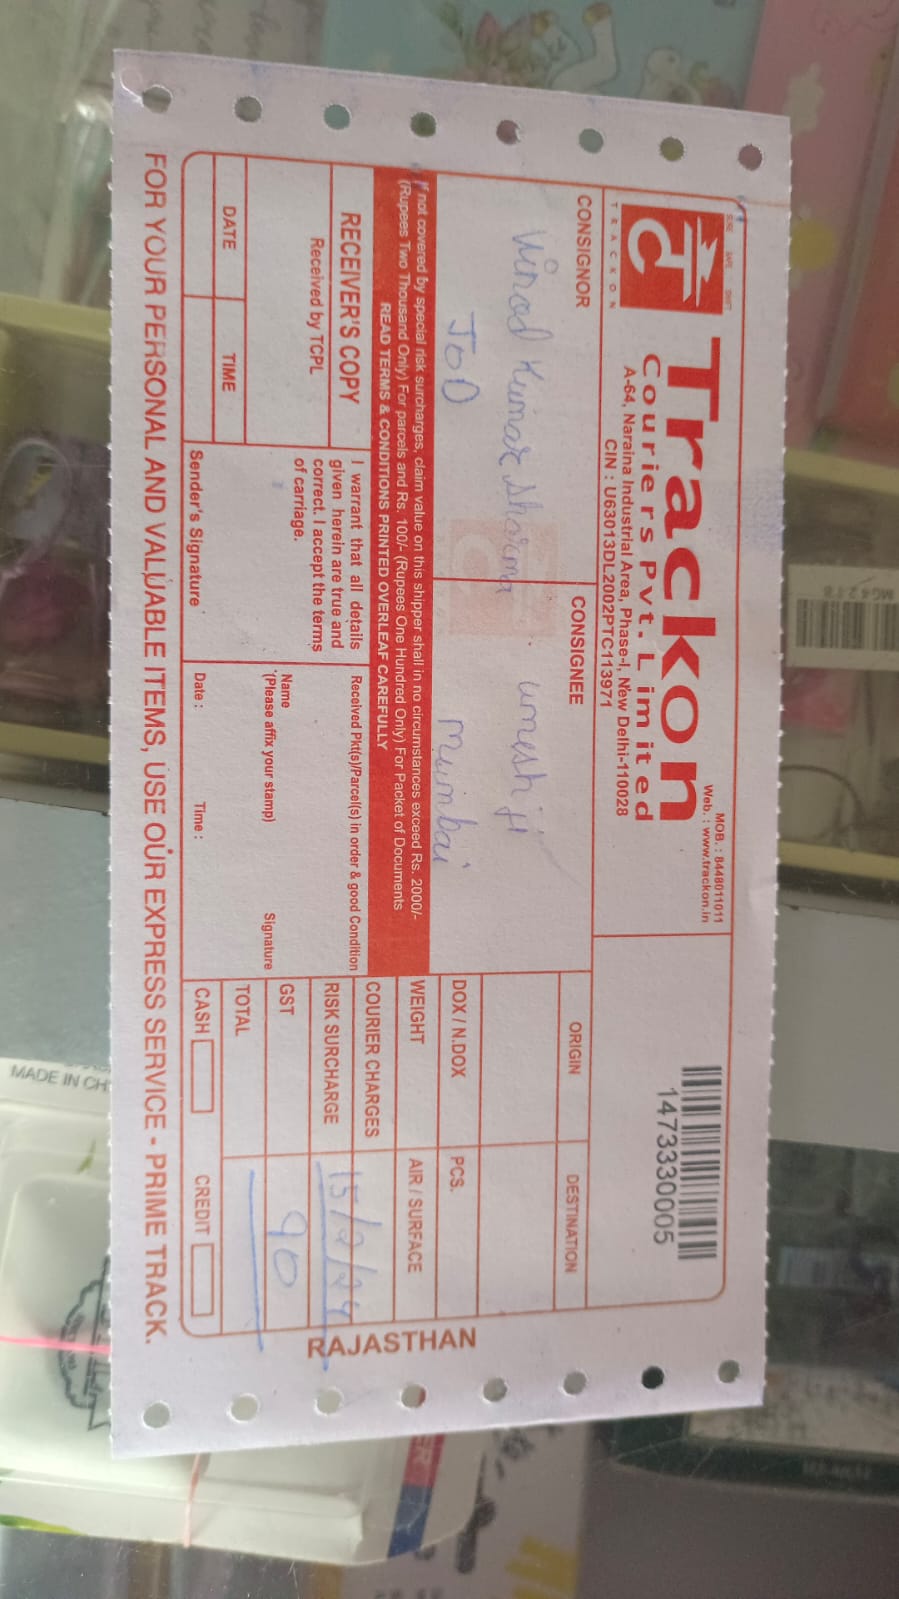 SURE SAFE SWIFT
TRACKON
Trackon
Couriers Pvt. Limited
A-64, Naraina Industrial Area, Phase-I, New Delhi-110028
CIN : U63013DL2002PTC113971
MOB. : 8448011011
Web. : www.trackon.in
1473330005
CONSIGNOR
Vinod Kumar Sharma
JOD
CONSIGNEE
Umesh ji
Mumbai
ORIGIN
DESTINATION
DOX / N.DOX
PCS.
WEIGHT
AIR / SURFACE
COURIER CHARGES
15/2/24
RISK SURCHARGE
GST
90
TOTAL
CASH
CREDIT
If not covered by special risk surcharges, claim value on this shipper shall in no circumstances exceed Rs. 2000/-
(Rupees Two Thousand Only) For parcels and Rs. 100/- (Rupees One Hundred Only) For Packet of Documents
READ TERMS & CONDITIONS PRINTED OVERLEAF CAREFULLY
RECEIVER'S COPY
Received by TCPL
DATE
TIME
I warrant that all details
given herein are true and
correct. I accept the terms
of carriage.
Sender's Signature
Received Pkt(s)/Parcel(s) in order & good Condition
Name
(Please affix your stamp)
Signature
Date :
Time :
FOR YOUR PERSONAL AND VALUABLE ITEMS, USE OUR EXPRESS SERVICE - PRIME TRACK.
RAJASTHAN
MADE IN CH